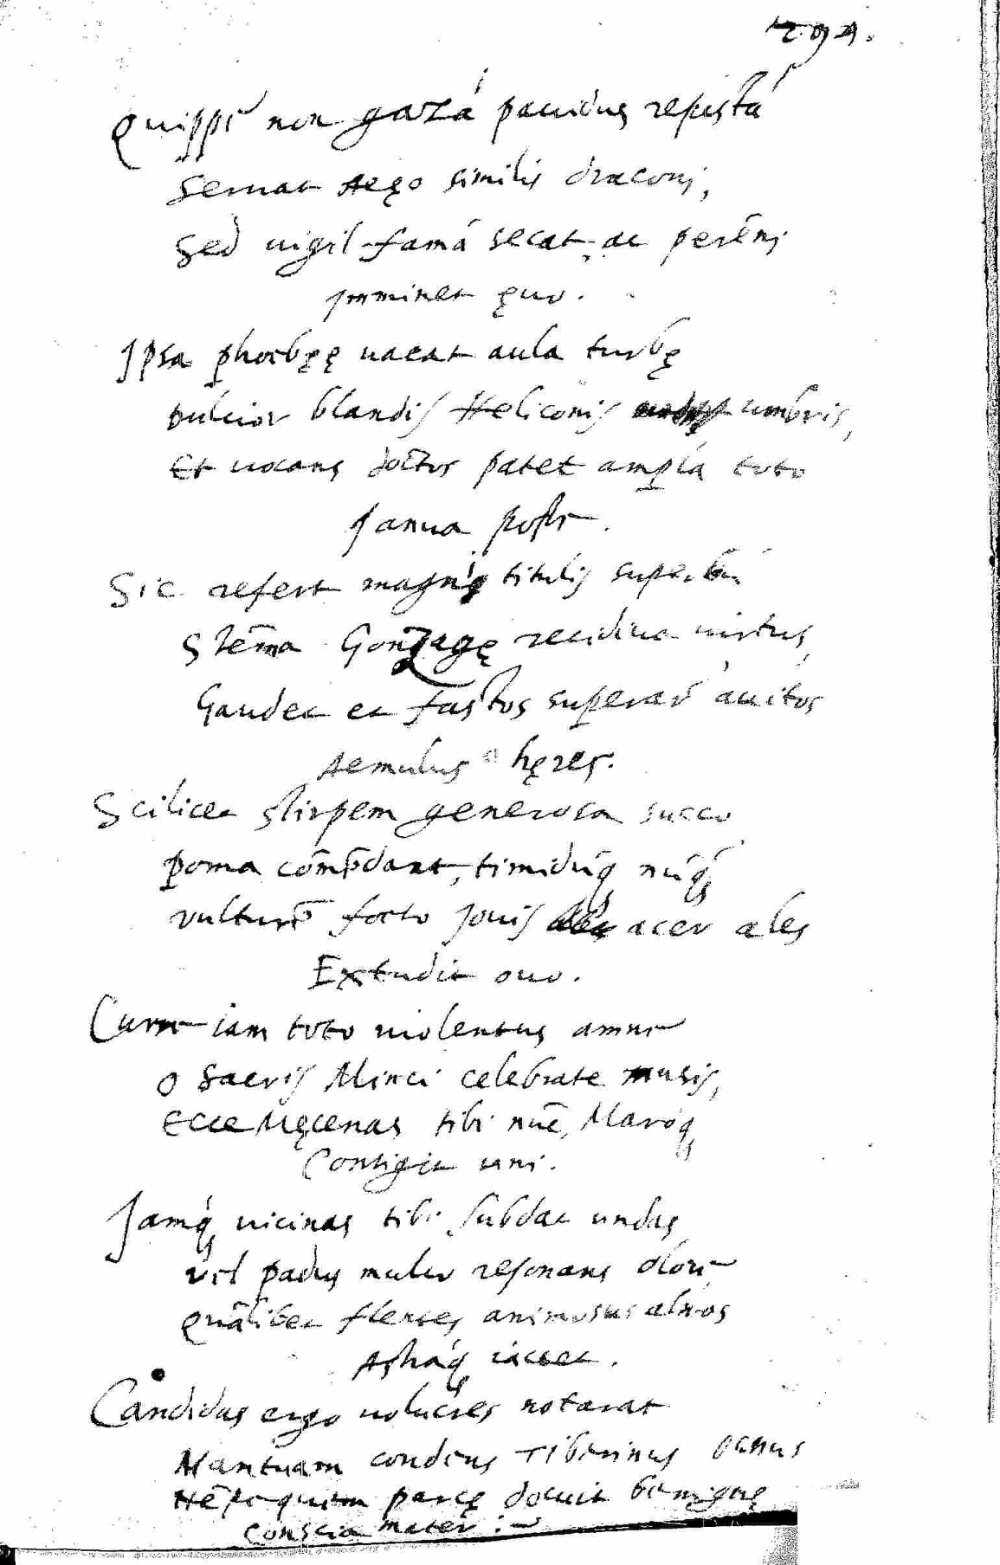 Quippe non gazá pauidus repostá
Seruat Aęgo similis draconi,
Sed uigil famá secat, ac perēni
Imminet ęuo.
Ipsa phoebęę uacat aula turbę
Dulcior blandis Heliconis umbris,
Et uocans doctos patet ampla toto
Janua poste.
Sic refert magnis titulis superbū
Stēma Gonzagę recidiua uirtus,
Gaudet et fastos superare auitos
Aemulus hęres.
Scilicet stirpem generosa succo
Poma cōmēdant, timidúq; núq;
vulturē foeto Jouis acer ales
Extudit ouo.
Curre iam toto uiolentus amne
O sacris Minci celebrate musis,
Ecce Męcenas tibi nūc, Maroq;
Contigit uni.
Jamq; uicinas tibi subdat undas
vel padus multo resonans olore
Quālibet flentes animosus alnos
Astraq; iactet.
Candidas ergo uolucres notarat
Mantuam condens Tiberinus Ocnus
Nēpe quem parcę docuit benignę
Conscia mater:~